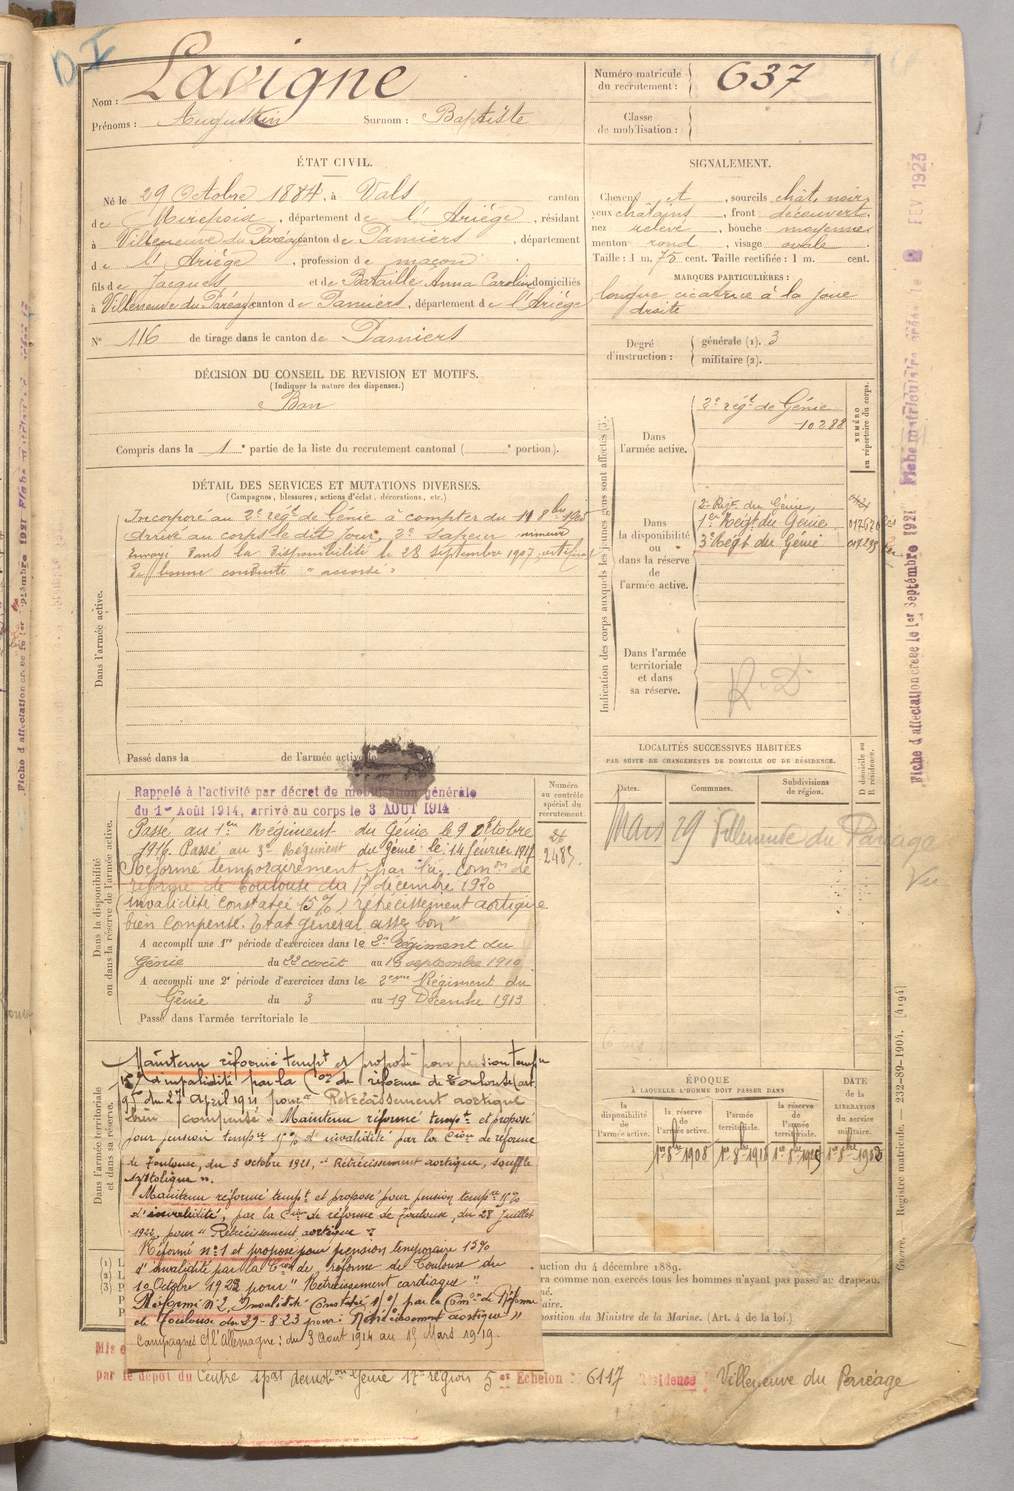 Nom : Lavigne
Prénoms : Augustin Surnom : Baptiste
Numéro matricule du recrutement : 637
Classe de mobilisation :
ÉTAT CIVIL.
Né le 29 Octobre 1884, à Vals canton
de Mirepoix, département de l'Ariège, résidant
à Villeneuve du Paréage canton de Pamiers, département
de l'Ariège, profession de maçon
fils de Jacques et de Bataille Anna Carolin domiciliés
à Villeneuve du Paréage canton de Pamiers, département de l'Ariège
N° 116 de tirage dans le canton de Pamiers
SIGNALEMENT.
Cheveux et, sourcils chât. noir,
yeux châtains, front découvert,
nez relevé, bouche moyenne,
menton rond, visage ovale
Taille : 1 m. 75 cent. Taille rectifiée : 1 m. cent.
MARQUES PARTICULIÈRES :
longue cicatrice à la joue
droite
Degré d'instruction : générale (1). 3
militaire (2).
DÉCISION DU CONSEIL DE REVISION ET MOTIFS.
(Indiquer la nature des dispenses.)
Bon
Compris dans la 1e partie de la liste du recrutement cantonal ( e portion).
DÉTAIL DES SERVICES ET MUTATIONS DIVERSES.
(Campagnes, blessures, actions d'éclat, décorations, etc.)
Dans l'armée active.
Incorporé au 2e régt de Génie à compter du 8bre 1905
Arrivé au corps le dit jour, 2e sapeur mineur
Envoyé dans la disponibilité le 28 septembre 1907, certificat
de bonne conduite "accordé"
Passé dans la de l'armée active le
Indication des corps auxquels les jeunes gens sont affectés (3).
NUMÉRO au répertoire du corps.
Dans l'armée active.
2e régt de Génie
10288
Dans la disponibilité ou dans la réserve de l'armée active.
2e Régt. du Génie
1er Régt du Génie
3e Régt du Génie
Dans l'armée territoriale et dans sa réserve.
R. D.
Dans la disponibilité ou dans la réserve de l'armée active.
Rappelé à l'activité par décret de mobilisation générale
du 1er Août 1914, arrivé au corps le 3 AOUT 1914
Passé au 1er Régiment du Génie le 9 Octobre
1916. Passé au 3e Régiment du Génie le 14 février 1917
Réformé temporairement par la Comon de
réforme de Toulouse du 17 décembre 1920
invalidité constatée (5%) rétrécissement aortique
bien compensé. Etat général assez bon"
A accompli une 1re période d'exercices dans le 2e Régiment du
Génie du 22 août au 13 septembre 1910
A accompli une 2e période d'exercices dans le 2eme Régiment du
Génie du 3 au 19 Décembre 1913
Passé dans l'armée territoriale le
Numéro au contrôle spécial du recrutement.
LOCALITÉS SUCCESSIVES HABITÉES
PAR SUITE DE CHANGEMENTS DE DOMICILE OU DE RÉSIDENCE.
D domicile ou R résidence.
Dates. Communes. Subdivisions de région.
Mars 29 Villeneuve du Paréage
Vu
Dans l'armée territoriale et dans sa réserve.
Maintenu réformé tempt et proposé pour pension tempre
15% d'invalidité par la Con de réforme de Toulouse (art
9) du 27 Avril 1921 pour Rétrécissement aortique
bien compensé. Maintenu réformé tempt et proposé
pour pension tempre % d'invalidité par la Cion de réforme
de Toulouse, du 3 octobre 1921, "Rétrécissement aortique, souffle
systolique".
Maintenu réformé tempt et proposé pour pension tempre %
d'invalidité, par la Cion de réforme de Toulouse, du 28 Juillet
1922, pour "Rétrécissement aortique"
Réformé n°1 et proposé pour pension temporaire 15%
d'invalidité par la Cion de réforme de Toulouse du
10 Octobre 1922 pour "Rétrécissement cardiaque"
Réformé n°2, Invalidité constatée % par la Comon de Réforme
de Toulouse du 29-8-23 pour: Rétrécissement aortique"
Campagnes c/ l'Allemagne : du 3 Aout 1914 au 19 Mars 1919.
ÉPOQUE
À LAQUELLE L'HOMME DOIT PASSER DANS
la disponibilité de l'armée active. la réserve de l'armée active. l'armée territoriale. la réserve de l'armée territoriale.
DATE de la LIBÉRATION du service militaire.
1er 8bre 1908 1er 8bre 1918
(1)
(2)
(3)
uction du 4 décembre 1889.
ra comme non exercés tous les hommes n'ayant pas passé au drapeau.
né.
aire.
position du Ministre de la Marine. (Art. 4 de la loi.)
Mis e
par le dépôt du Centre spal démobon Génie 17e région 5 Echelon : 6117 Résidence Villeneuve du Paréage
Fiche d'affectation créée le 1er Septembre 1921 Fiche matriculaire créée le 8 FEV 1923
Guerre. Registre matricule. — 232-89-1904. [4194]